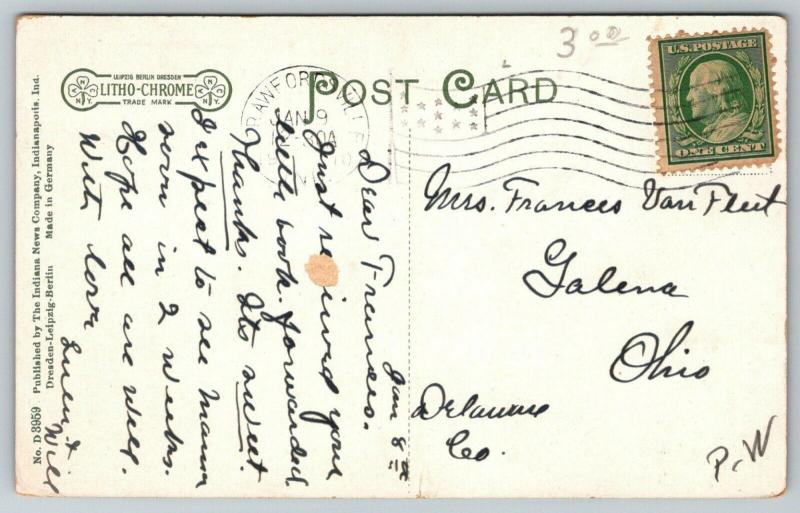 3 00
POST CARD
LEIPZIG BERLIN DRESDEN
LITHO-CHROME
TRADE MARK
N K N Y
CRAWFORDSVILLE
JAN 9
IND
U.S. POSTAGE
ONE CENT
Jan 8
Dear Frances.
Just received your
book. forwarded
Thanks. Its sweet.
I expect to see Mama
soon in 2 weeks.
Hope all are well.
With love
Will
Mrs. Frances Van Fleet
Galena
Ohio
Delaware
Co.
P-W
No. D 3959 Published by The Indiana News Company, Indianapolis, Ind.
Dresden-Leipzig-Berlin Made in Germany